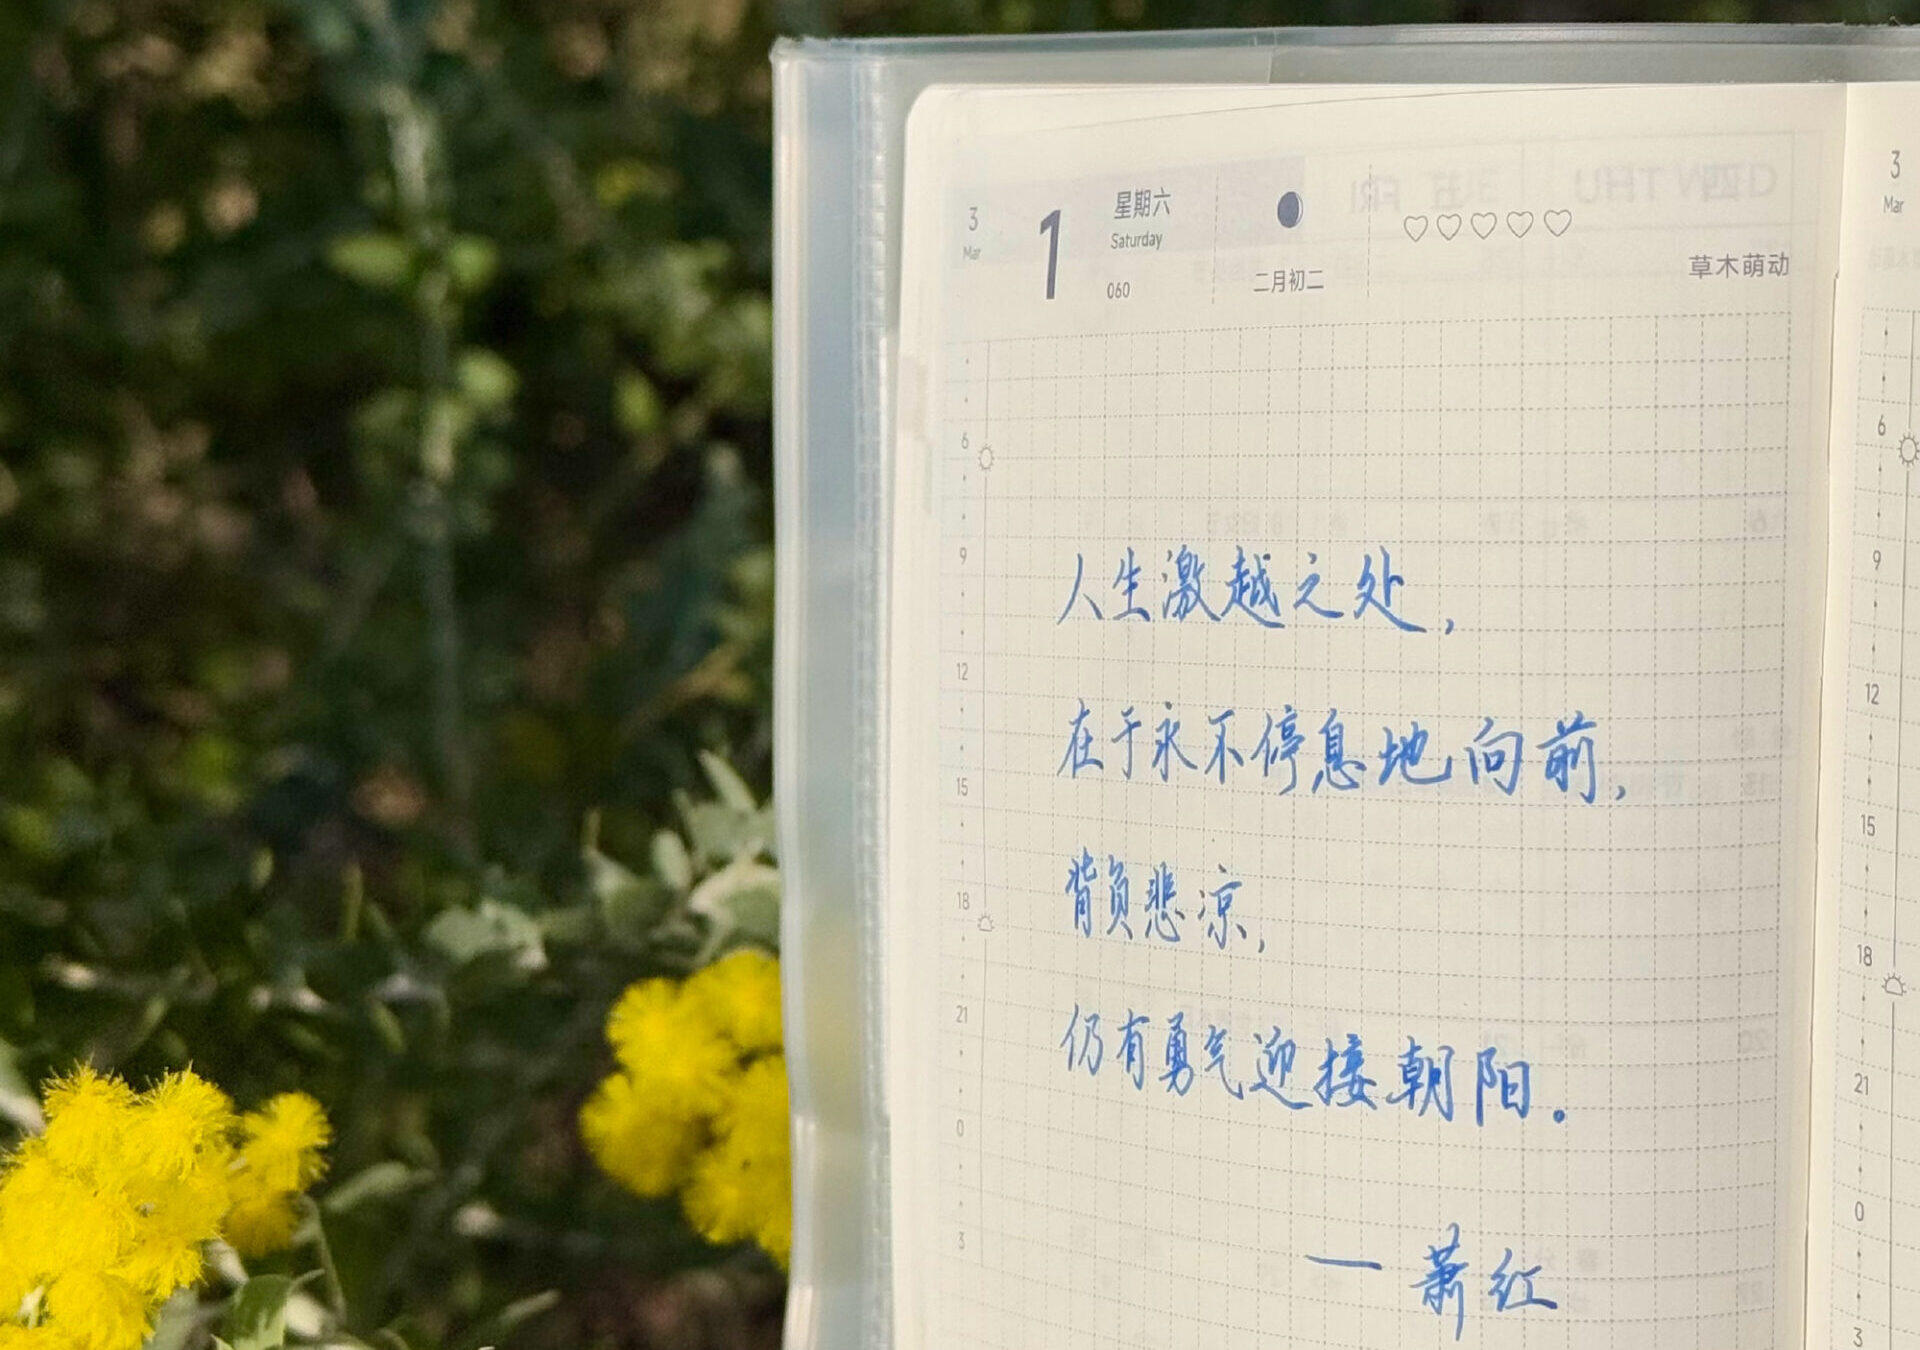 3
Mar
1
星期六
Saturday
060
二月初二
草木萌动
6
9
12
15
18
21
0
3
人生激越之处，
在于永不停息地向前，
背负悲凉，
仍有勇气迎接朝阳。
— 萧红
3
Mar
6
9
12
15
18
21
0
3